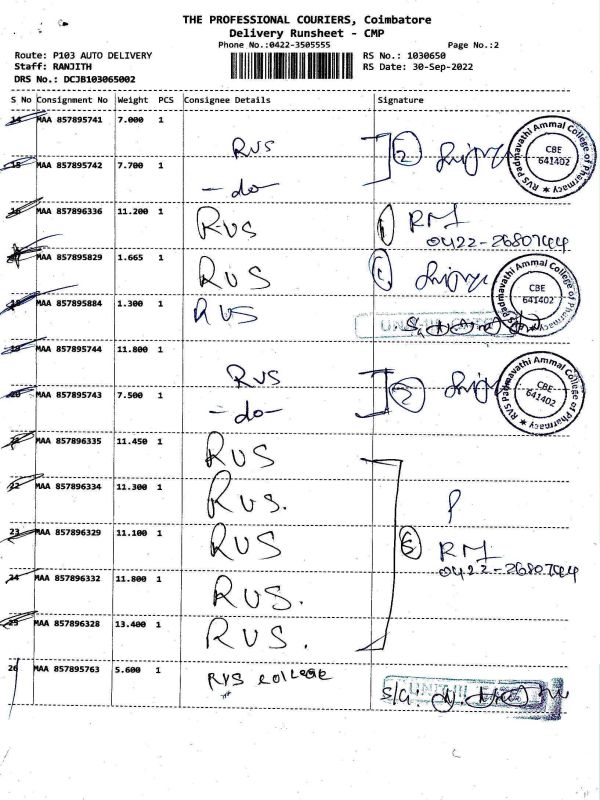 THE PROFESSIONAL COURIERS, Coimbatore
Delivery Runsheet - CMP
Phone No.:0422-3505555 Page No.:2
Route: P103 AUTO DELIVERY RS No.: 1030650
Staff: RANJITH RS Date: 30-Sep-2022
DRS No.: DCJB103065002
S No Consignment No Weight PCS Consignee Details Signature
14 MAA 857895741 7.000 1 RVS
15 MAA 857895742 7.700 1 - do - 2
RVS Padmavathi Ammal College of Pharmacy ★ CBE 641402
16 MAA 857896336 11.200 1 RVS 1 RM
0422-2680744
MAA 857895829 1.665 1 RVS 1
RVS Padmavathi Ammal College of Pharmacy ★ CBE 641402
18 MAA 857895884 1.300 1 RVS
19 MAA 857895744 11.800 1 RVS
20 MAA 857895743 7.500 1 - do -
RVS Padmavathi Ammal College of Pharmacy ★ CBE 641402
21 MAA 857896335 11.450 1 RVS
22 MAA 857896334 11.300 1 RVS.
23 MAA 857896329 11.100 1 RVS 5 RM
0422-2680744
24 MAA 857896332 11.800 1 RVS.
25 MAA 857896328 13.400 1 RVS.
26 MAA 857895763 5.600 1 RVS college